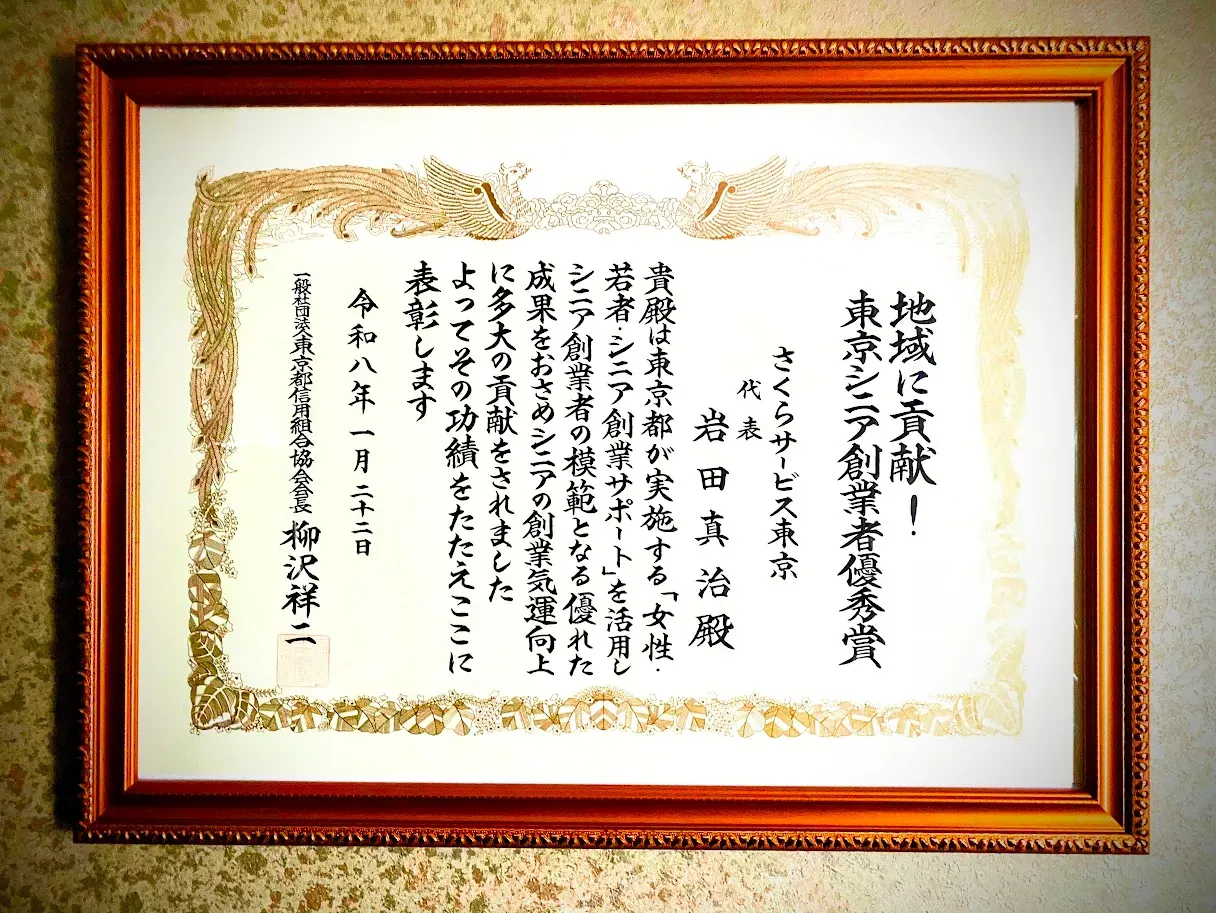 地域に貢献!
東京シニア創業者優秀賞
さくらサービス東京
代表
岩田真治殿
貴殿は東京都が実施する「女性・
若者・シニア創業サポート」を活用し
シニア創業者の模範となる優れた
成果をおさめシニアの創業気運向上
に多大の貢献をされました
よってその功績をたたえここに
表彰します
令和八年一月二十二日
一般社団法人東京都信用組合協会会長 柳沢祥二